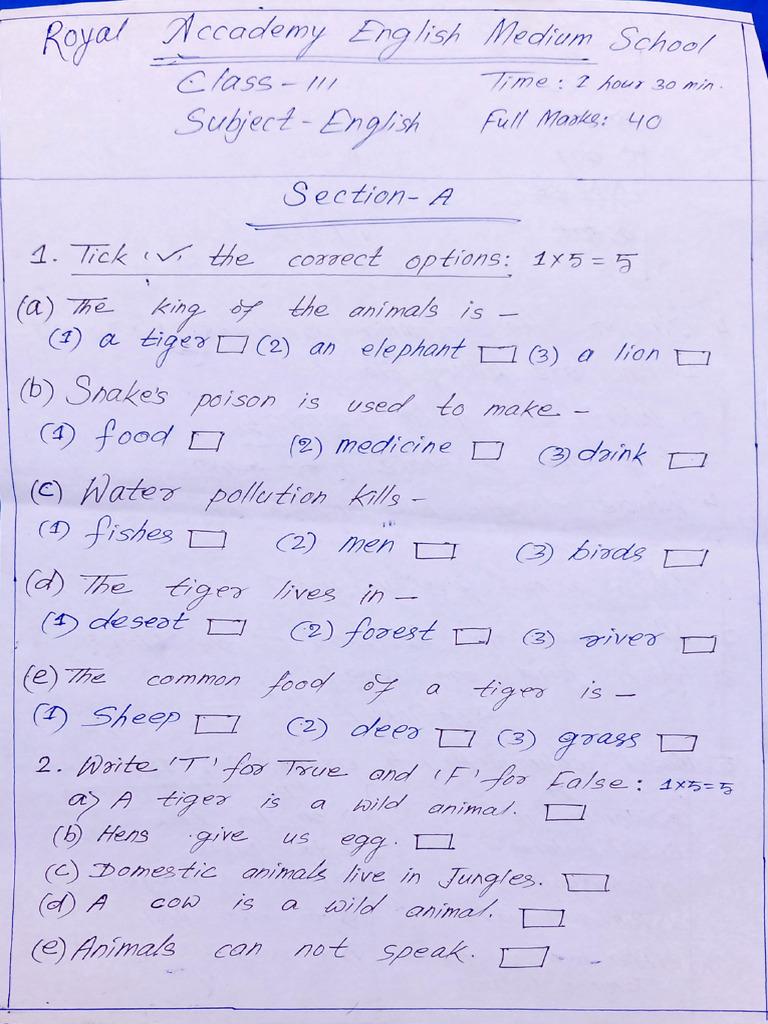 Royal Accademy English Medium School
Class - III Time: 2 hour 30 min.
Subject - English Full Marks: 40
Section - A
1. Tick (✓) the correct options: 1×5=5
(a) The king of the animals is —
(1) a tiger □ (2) an elephant □ (3) a lion □
(b) Snake's poison is used to make —
(1) food □ (2) medicine □ (3) drink □
(c) Water pollution kills -
(1) fishes □ (2) men □ (3) birds □
(d) The tiger lives in —
(1) desert □ (2) forest □ (3) river □
(e) The common food of a tiger is —
(1) Sheep □ (2) deer □ (3) grass □
2. Write 'T' for True and 'F' for False: 1×5=5
a) A tiger is a wild animal. □
(b) Hens give us egg. □
(c) Domestic animals live in Jungles. □
(d) A cow is a wild animal. □
(e) Animals can not speak. □